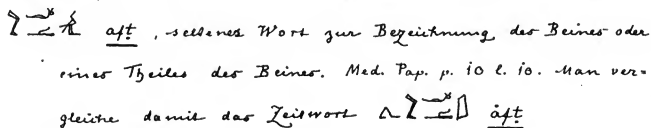 aft, seltenes Wort zur Bezeichnung des Beines oder
eines Theiles des Beines. Med. Pap. p. 10 l. 10. Man ver-
gleiche damit das Zeitwort åft